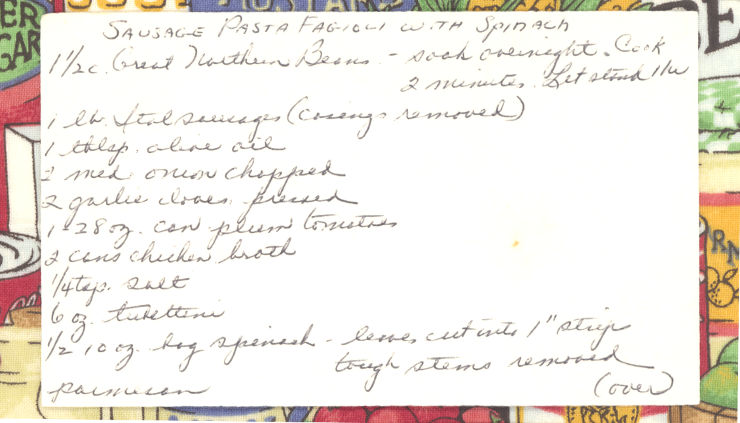 SAUSAGE PASTA FAGIOLI WITH SPINACH
1 1/2 c. Great Northern Beans - soak overnight. Cook
2 minutes. Let stand 1 hr
1 lb. Ital sausages (casings removed)
1 tblsp. olive oil
2 med onion chopped
2 garlic cloves pressed
1-28 oz. can plum tomatoes
2 cans chicken broth
1/4 tsp. salt
6 oz. tubettini
1/2 10 oz. bag spinach - leaves cut into 1" strip
tough stems removed
parmesan
(over)